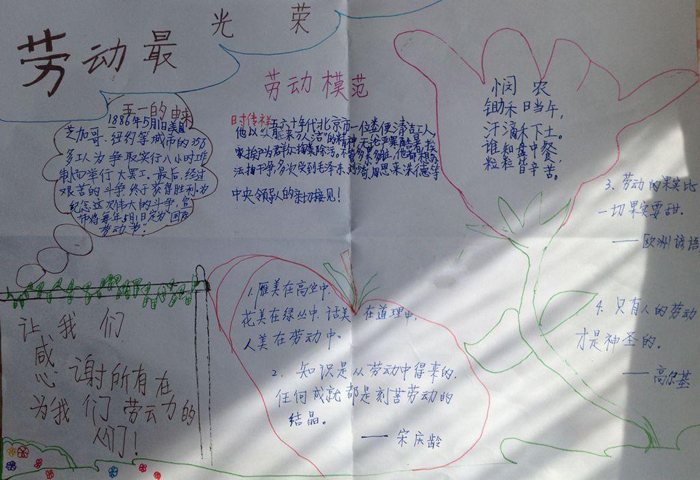 劳动最光荣
五一的由来
1886年5月1日美国
芝加哥、纽约等城市的35
多工人为争取实行八小时工作
制而举行大罢工,最后,经过
艰苦的斗争终于获得胜利,为
纪念这次伟大的斗争,宣
布将每年5月1日定为"国际
劳动节"。
劳动模范
时传祥
五六十年代北京市一位粪便清洁工人,
中央领导人的亲切接见!
悯农
锄禾日当午,
汗滴禾下土。
谁知盘中餐,
粒粒皆辛苦。
让我们
感谢所有在
为我们劳动的
人们!
1、雁美在高空中,
花美在绿丛中,话美在道理中,
人美在劳动中。
2、知识是从劳动中得来的,
任何成就都是刻苦劳动的
结晶。
——宋庆龄
3、劳动的果实比
一切果实要甜。
——欧洲谚语
4、只有人的劳动
才是神圣的。
——高尔基